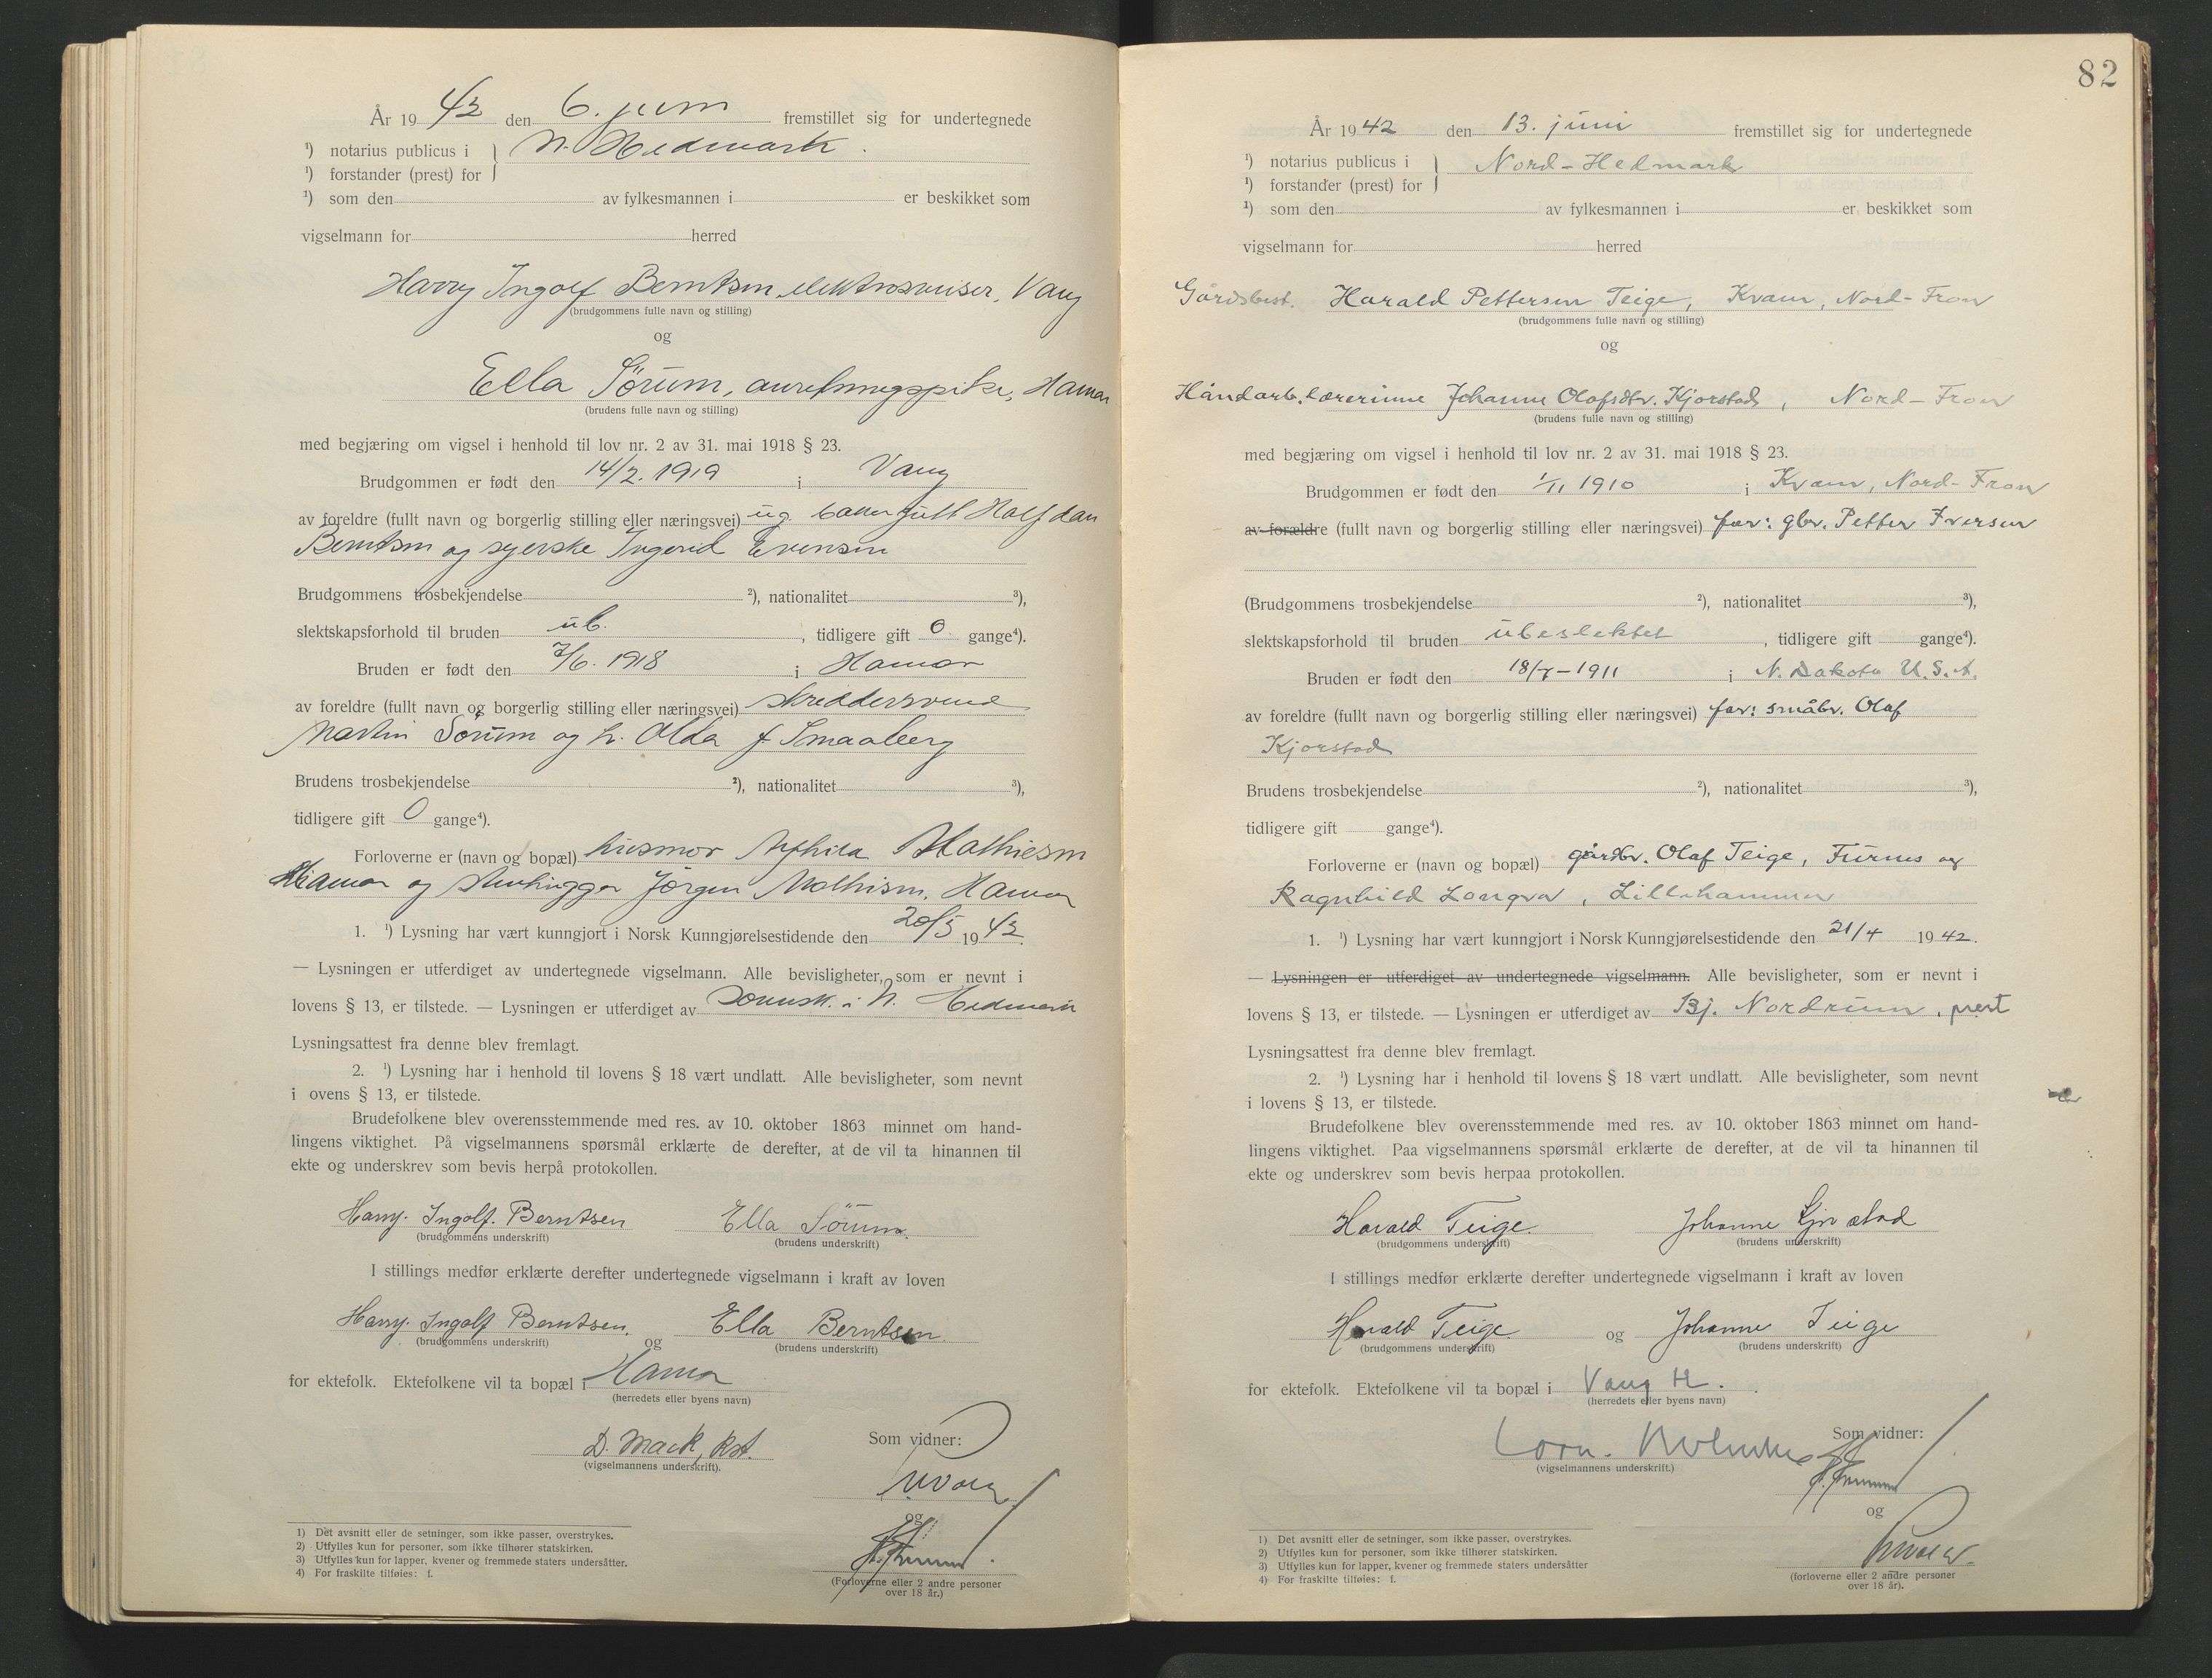 År 19 42 den 6. juni fremstillet sig for undertegnede
¹) notarius publicus i } N. Hedmark.
¹) forstander (prest) for
¹) som den av fylkesmannen i er beskikket som
vigselmann for herred
Harry Ingolf Berntsen, elektrosveiser, Vang
(brudgommens fulle navn og stilling)
og
Ella Sörum, anretningspike, Hamar
(brudens fulle navn og stilling)
med begjæring om vigsel i henhold til lov nr. 2 av 31. mai 1918 § 23.
Brudgommen er født den 14/2. 1919 i Vang
av foreldre (fullt navn og borgerlig stilling eller næringsvei) ug. Halfdan
Berntsen og syerske Ingerid Evensen
Brudgommens trosbekjendelse ²), nationalitet ³),
slektskapsforhold til bruden ub. , tidligere gift 0 gange⁴).
Bruden er født den 7/6. 1918 i Hamar
av foreldre (fullt navn og borgerlig stilling eller næringsvei) skreddersvend
Martin Sörum og h. Alda f. Smaaberg
Brudens trosbekjendelse ²), nationalitet ³),
tidligere gift 0 gange⁴).
Forloverne er (navn og bopæl) husmor Mathiesen
Hamar og stenhugger Jörgen Mathisen, Hamar
1. ¹) Lysning har vært kunngjort i Norsk Kunngjørelsestidende den 20/5 19 42.
— Lysningen er utferdiget av undertegnede vigselmann. Alle bevisligheter, som er nevnt i
lovens § 13, er tilstede. — Lysningen er utferdiget av sorensk. i N. Hedmark
Lysningsattest fra denne blev fremlagt.
2. ¹) Lysning har i henhold til lovens § 18 vært undlatt. Alle bevisligheter, som nevnt
i ovens § 13, er tilstede.
Brudefolkene blev overensstemmende med res. av 10. oktober 1863 minnet om hand-
lingens viktighet. På vigselmannens spørsmål erklærte de derefter, at de vil ta hinannen til
ekte og underskrev som bevis herpå protokollen.
Harry. Ingolf. Berntsen Ella Sörum.
(brudgommens underskrift) (brudens underskrift)
I stillings medfør erklærte derefter undertegnede vigselmann i kraft av loven
Harry. Ingolf Berntsen. og Ella Berntsen
(brudgommens underskrift) (brudens underskrift)
for ektefolk. Ektefolkene vil ta bopæl i Hamar
(herredets eller byens navn)
D. Mack, kst. Som vidner:
(vigselmannens underskrift).
og
(Forloverne eller 2 andre personer
over 18 år.)
1) Det avsnitt eller de setninger, som ikke passer, overstrykes.
2) Utfylles kun for personer, som ikke tilhører statskirken.
3) Utfylles kun for lapper, kvener og fremmede staters undersåtter.
4) For fraskilte tilføies: f.
82
År 19 42 den 13. juni fremstillet sig for undertegnede
¹) notarius publicus i } Nord-Hedmark
¹) forstander (prest) for
¹) som den av fylkesmannen i er beskikket som
vigselmann for herred
Gårdsbest. Harald Pettersen Teige, Kvam, Nord-Fron
(brudgommens fulle navn og stilling)
og
Håndarb.lærerinne Johanne Olafsdtr. Kjorstad, Nord-Fron
(brudens fulle navn og stilling)
med begjæring om vigsel i henhold til lov nr. 2 av 31. mai 1918 § 23.
Brudgommen er født den 1/11 1910 i Kvam, Nord-Fron
av forældre (fullt navn og borgerlig stilling eller næringsvei) far: gbr. Petter Iversen
(Brudgommens trosbekjendelse ²), nationalitet ³),
slektskapsforhold til bruden ubeslektet , tidligere gift gange⁴).
Bruden er født den 18/7-1911 i N. Dakota U.S.A.
av foreldre (fullt navn og borgerlig stilling eller næringsvei) far: småbr. Olaf
Kjorstad
Brudens trosbekjendelse ²), nationalitet ³),
tidligere gift gange⁴).
Forloverne er (navn og bopæl) gårdbr. Olaf Teige, Furnes og
Ragnhild Longva, Lillehammer
1. ¹) Lysning har vært kunngjort i Norsk Kunngjørelsestidende den 21/4 19 42.
— Lysningen er utferdiget av undertegnede vigselmann. Alle bevisligheter, som er nevnt i
lovens § 13, er tilstede. — Lysningen er utferdiget av Bj. Nordrum, prest
Lysningsattest fra denne blev fremlagt.
2. ¹) Lysning har i henhold til lovens § 18 vært undlatt. Alle bevisligheter, som nevnt
i lovens § 13, er tilstede.
Brudefolkene blev overensstemmende med res. av 10. oktober 1863 minnet om hand-
lingens viktighet. Paa vigselmannens spørsmål erklærte de derefter, at de vil ta hinannen til
ekte og underskrev som bevis herpaa protokollen.
Harald Teige. Johanne Kjorstad
(brudgommens underskrift) (brudens underskrift)
I stillings medfør erklærte derefter undertegnede vigselmann i kraft av loven
Harald Teige og Johanne Teige
(brudgommens underskrift) (brudens underskrift)
for ektefolk. Ektefolkene vil ta bopæl i Vang H.
(herredets eller byens navn)
Som vidner:
(vigselmannens underskrift.)
og
(forloverne eller 2 andre personer
over 18 år).
1) Det avsnitt eller de setninger, som ikke passer, overstrykes.
2) Utfylles kun for personer, som ikke tilhører statskirken.
3) Utfylles kun for lapper, kvener og fremmede staters undersåtter
4) For fraskilte tilføies: f.